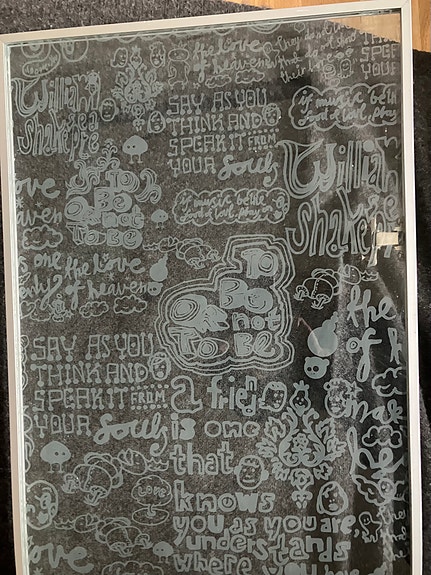 the Love
of heaven
William
Shakespeare
SAY AS YOU
THINK AND
SPEAK IT FROM
YOUR Souls
SPEA
YOUR
if music be the
food of love, play
William
Shakespe
TO
BE
OR not
TO BE
if music be the
food of love, play on
ove
aven
TO
BE
OR not
TO BE
s one
the Love
only of heaven
SAY AS YOU
THINK AND
SPEAK IT FROM
YOUR Souls
the
of h
a friend
is one
that
knows
you as you are,
understands
where you have
Love
ove